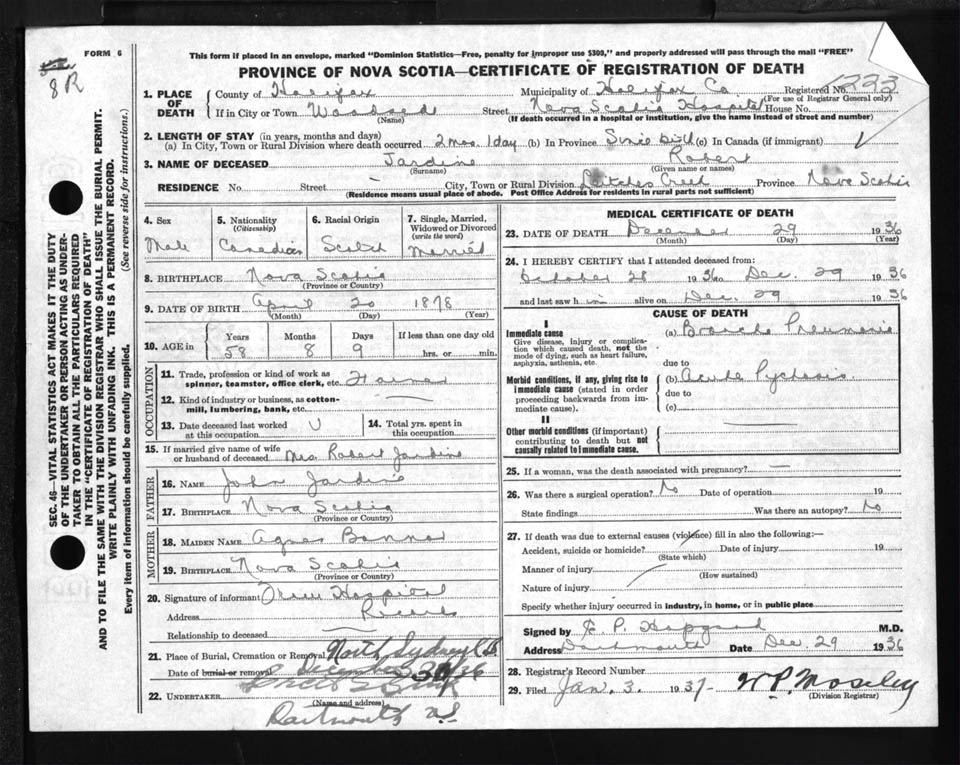 FORM 6
8R
This form if placed in an envelope, marked "Dominion Statistics—Free, penalty for improper use $300," and properly addressed will pass through the mail "FREE"
PROVINCE OF NOVA SCOTIA—CERTIFICATE OF REGISTRATION OF DEATH
SEC. 46—VITAL STATISTICS ACT MAKES IT THE DUTY
OF THE UNDERTAKER OR PERSON ACTING AS UNDER-
TAKER TO OBTAIN ALL THE PARTICULARS REQUIRED
IN THE "CERTIFICATE OF REGISTRATION OF DEATH"
AND TO FILE THE SAME WITH THE DIVISION REGISTRAR WHO SHALL ISSUE THE BURIAL PERMIT.
WRITE PLAINLY WITH UNFADING INK. THIS IS A PERMANENT RECORD.
Every item of information should be carefully supplied. (See reverse side for instructions.)
1. PLACE OF DEATH
County of Halifax Municipality of Halifax Co. Registered No. 1333
(For use of Registrar General only)
If in City or Town Woodside Street Nova Scotia Hospital House No.
(Name) (If death occurred in a hospital or institution, give the name instead of street and number)
2. LENGTH OF STAY (in years, months and days)
(a) In City, Town or Rural Division where death occurred 2 mos. 1 day (b) In Province Since birth (c) In Canada (if immigrant)
3. NAME OF DECEASED Jardine Robert
(Surname) (Given name or names)
RESIDENCE No Street City, Town or Rural Division Leitches Creek Province Nova Scotia
(Residence means usual place of abode. Post Office Address for residents in rural parts not sufficient)
4. Sex Male
5. Nationality (Citizenship) Canadian
6. Racial Origin Scotch
7. Single, Married, Widowed or Divorced (write the word) Married
8. BIRTHPLACE Nova Scotia
(Province or Country)
9. DATE OF BIRTH April 20 1878
(Month) (Day) (Year)
10. AGE in Years 58 Months 8 Days 9 If less than one day old hrs. or min.
OCCUPATION
11. Trade, profession or kind of work as spinner, teamster, office clerk, etc. Farmer
12. Kind of industry or business, as cotton-mill, lumbering, bank, etc.
13. Date deceased last worked at this occupation U
14. Total yrs. spent in this occupation
15. If married give name of wife or husband of deceased Mrs. Robert Jardine
FATHER
16. NAME John Jardine
17. BIRTHPLACE Nova Scotia
(Province or Country)
MOTHER
18. MAIDEN NAME Agnes
19. BIRTHPLACE Nova Scotia
(Province or Country)
20. Signature of informant From Hospital
Address Records
Relationship to deceased
21. Place of Burial, Cremation or Removal North Sydney C B
Date of burial or removal December 30/36
22. UNDERTAKER
(Name and address)
Dartmouth NS
MEDICAL CERTIFICATE OF DEATH
23. DATE OF DEATH December 29 1936
(Month) (Day) (Year)
24. I HEREBY CERTIFY that I attended deceased from:
October 28 1936 to Dec. 29 1936
and last saw him alive on Dec. 29 1936
CAUSE OF DEATH
Immediate cause (a) Broncho Pneumonia
Give disease, injury or complica-
tion which caused death, not the
mode of dying, such as heart failure,
asphyxia, asthenia, etc. due to
Morbid conditions, if any, giving rise to (b) Acute Psychosis.
immediate cause (stated in order due to
proceeding backwards from im-
mediate cause). (c)
II
Other morbid conditions (if important)
contributing to death but not
causally related to immediate cause.
25. If a woman, was the death associated with pregnancy?
26. Was there a surgical operation? No Date of operation 19
State findings Was there an autopsy? No
27. If death was due to external causes (violence) fill in also the following:—
Accident, suicide or homicide? Date of injury 19
(State which)
Manner of injury
(How sustained)
Nature of injury
Specify whether injury occurred in industry, in home, or in public place
Signed by E P Hapgood M.D.
Address Dartmouth Date Dec. 29 1936
28. Registrar's Record Number
29. Filed Jan. 3. 1937 W.P. Moseley
(Division Registrar)